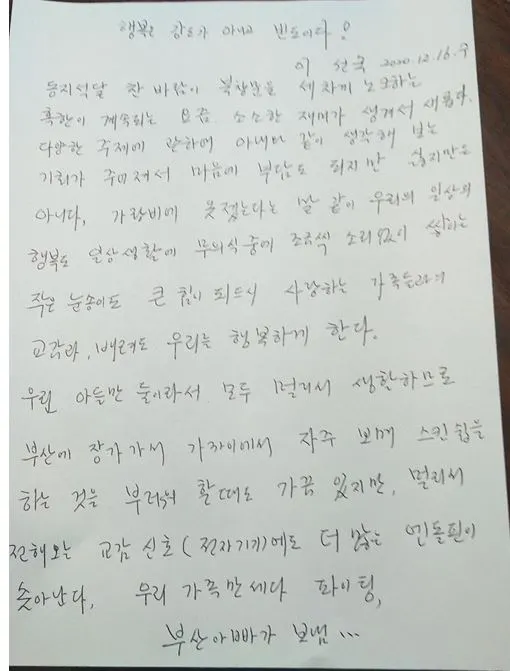 행복은 강도가 아니고 빈도이다!
이 선욱 2020.12.16.수
동지석달 찬 바람이 북창문을 세차게 노크하는
혹한이 계속되는 요즘 소소한 재미가 생겨서 새롭다.
다양한 주제에 관하여 아내와 같이 생각해 보는
기회가 주어져서 마음에 부담도 되지만 싫지만은
아니다, 가랑비에 옷젖는다는 말 같이 우리의 일상의
행복도 일상생활에 무의식중에 조금씩 소리없이 쌓이는
작은 눈송이도 큰 힘이 되드시 사랑하는 가족들과의
교감과, 배려도 우리를 행복하게 한다.
우린 아들만 둘이라서 모두 멀리서 생활하므로
부산에 장가가서 가까이에서 자주 보게 스킨쉽을
하는 것을 부러워 할때도 가끔 있지만, 멀리서
전해오는 교감 신호(전자기기)에도 더 많은 엔돌핀이
솟아난다, 우리 가족만세다 파이팅,
부산아빠가 보냄...